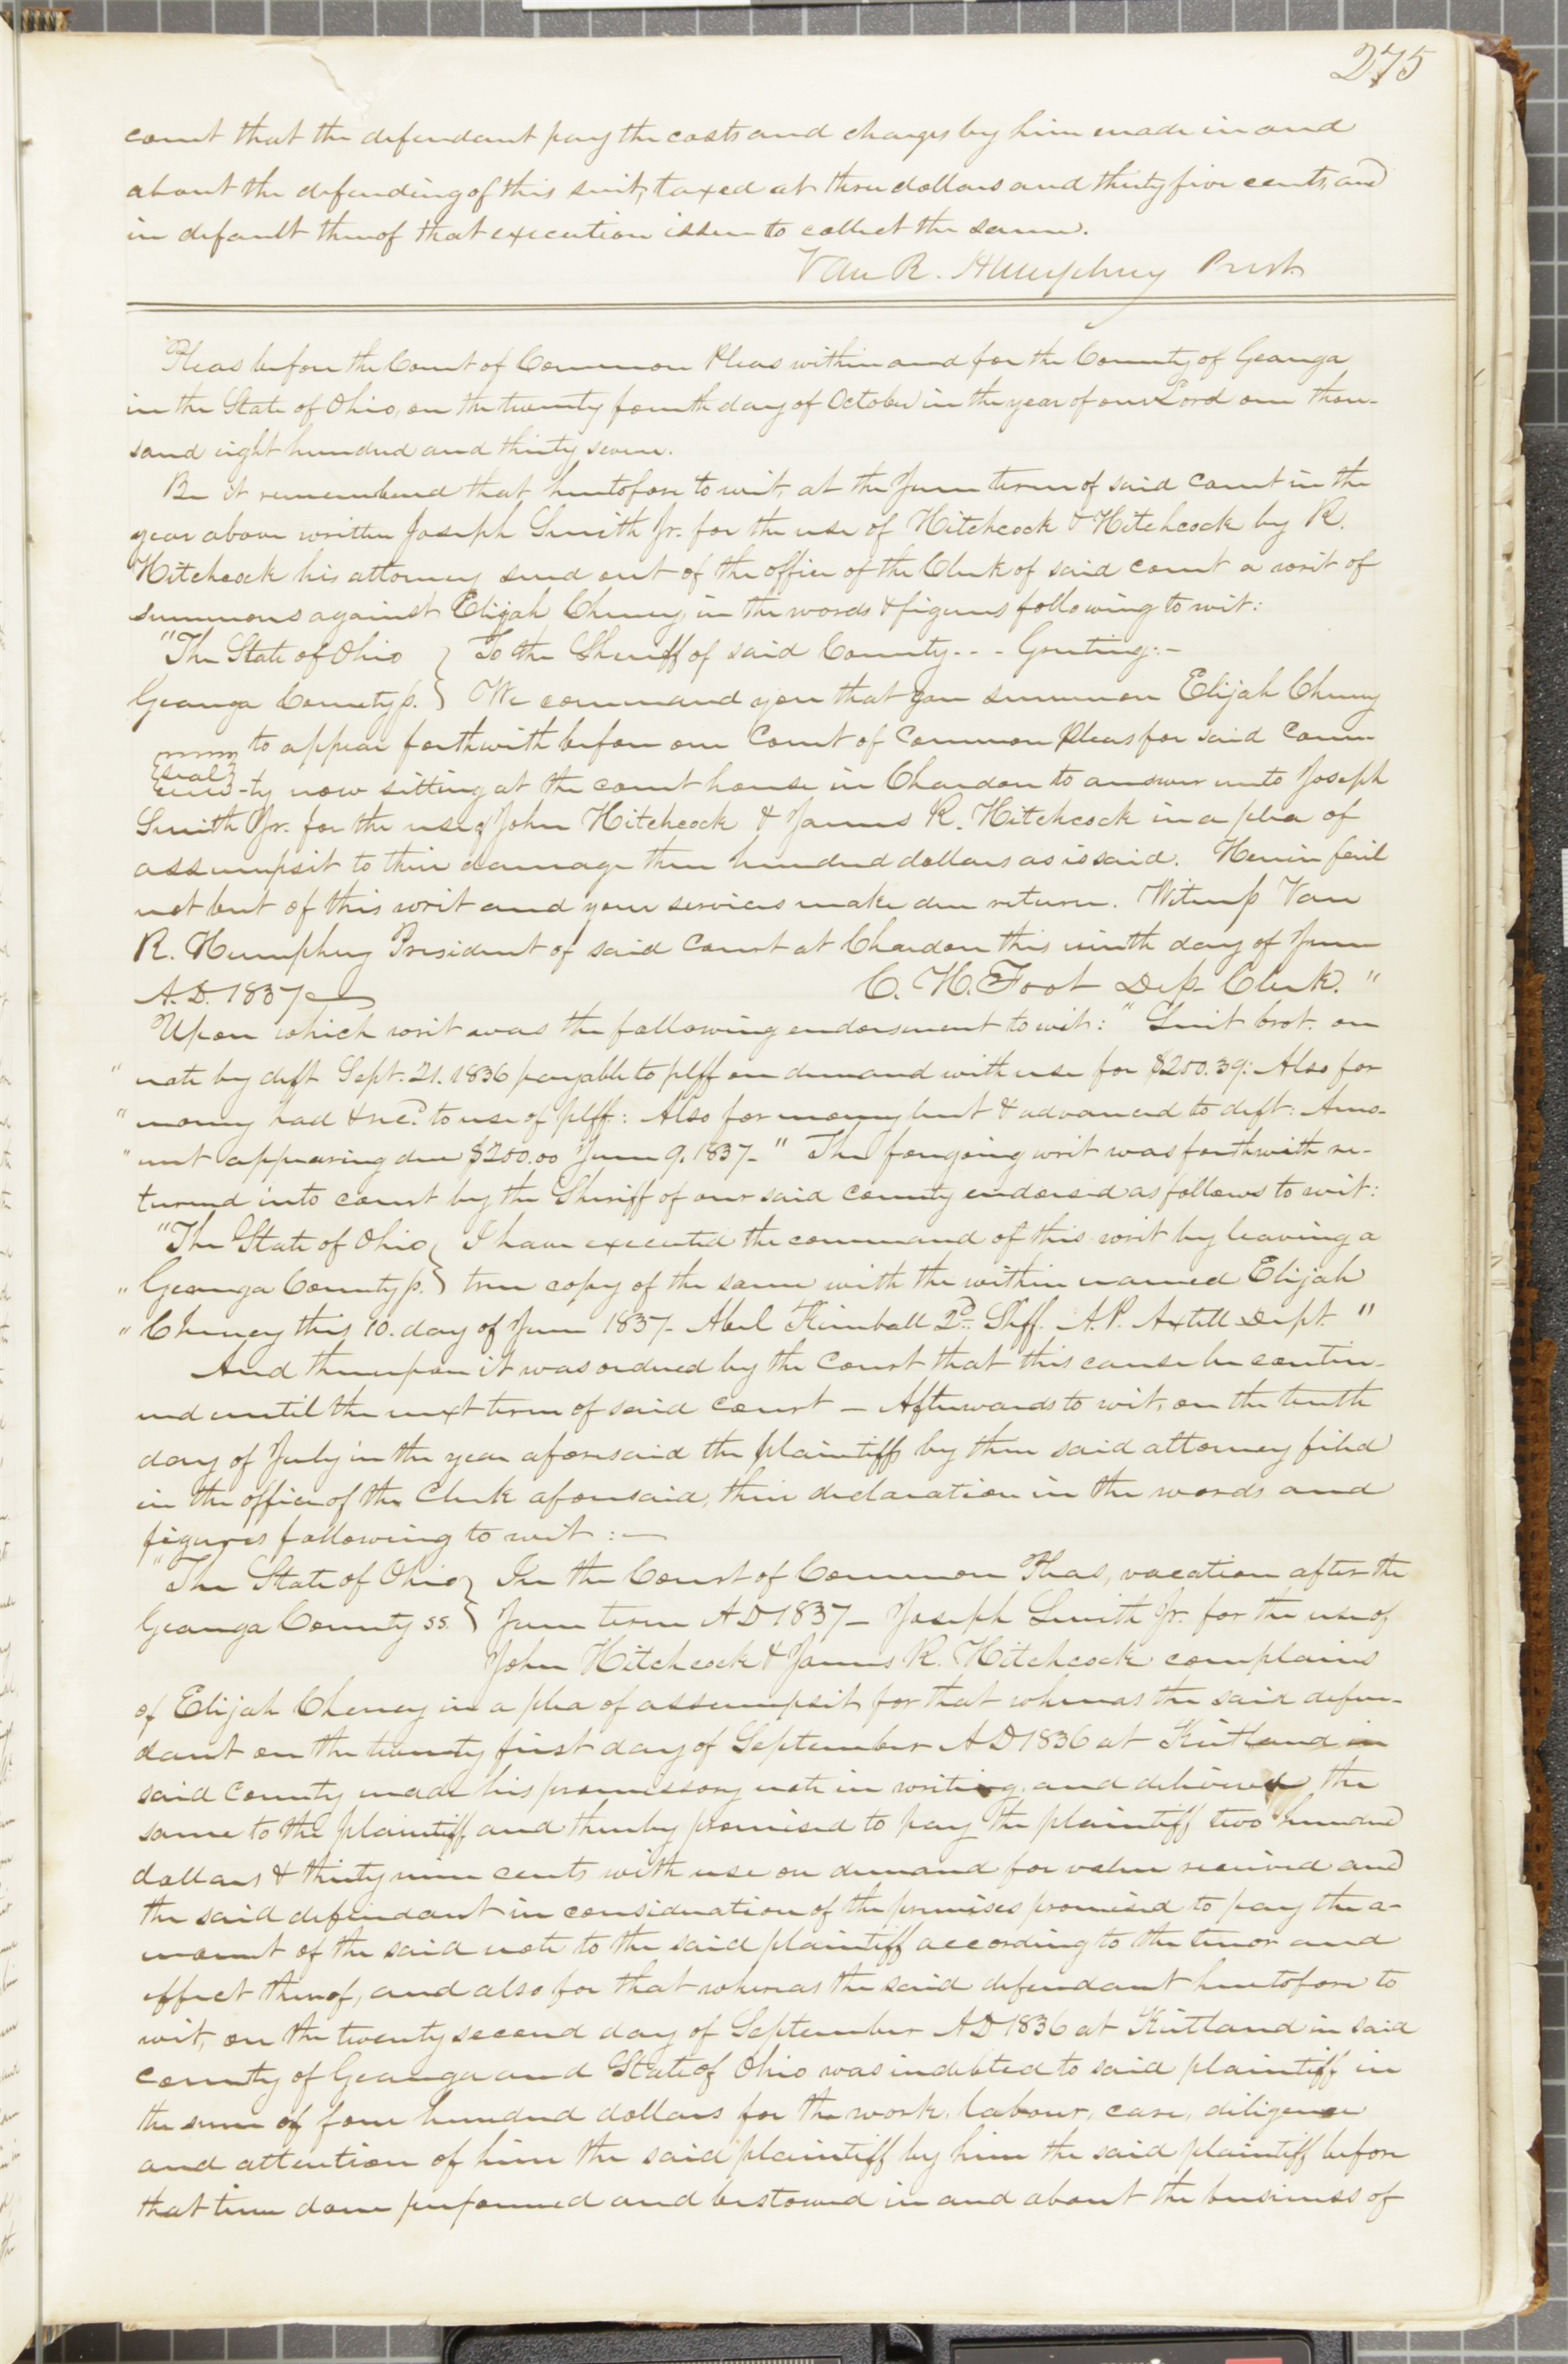 275
court that the defendant pay the costs and charges by him made in and
about the defending of this suit, taxed at three dollars and thirty five cents, and
in default thereof that execution issue to collect the same.
Van R. Humphrey Prest.
Pleas before the Court of Common Pleas within and for the County of Geauga
in the State of Ohio, on the twenty fourth day of October in the year of our Lord one thou-
sand eight hundred and thirty seven.
Be it remembered that heretofore to wit, at the June term of said court in the
year above written Joseph Smith Jr. for the use of Hitchcock & Hitchcock by R.
Hitchcock his attorney sued out of the office of the Clerk of said court a writ of
summons against Elijah Cheney, in the words & figures following to wit:
"The State of Ohio } To the Sheriff of said County - - - Greeting:-
Geauga County ss. } We command you that you summon Elijah Cheney
to appear forthwith before our Court of Common Pleas for said Coun-
{seal} -ty now sitting at the court house in Chardon to answer unto Joseph
Smith Jr. for the use of John Hitchcock & James R. Hitchcock in a plea of
assumpsit to their damage three hundred dollars as is said. Herein fail
not but of this writ and your services make due return. Witness Van
R. Humphrey President of said Court at Chardon this ninth day of June
A.D. 1837
C. H. Foot Dep. Clerk. "
Upon which writ was the following endorsement to wit: "Suit brot. on
" note by deft Sept. 21. 1836 payable to plff on demand with use for $200.39: Also for
" money had & recd. to use of plff: Also for money lent & advanced to deft: Amo-
" unt appearing due $200.00 June 9. 1837- " The foregoing writ was forthwith re-
turned into court by the Sheriff of our said county endorsed as follows to wit:
"The State of Ohio } I have executed the command of this writ by leaving a
" Geauga County ss. } true copy of the same with the within named Elijah
" Cheney this 10. day of June 1837- Abel Kimball 2d. Shff. A.P. Axtell Dept "
And thereupon it was ordered by the Court that this cause be contin-
ued until the next term of said court - Afterwards to wit, on the tenth
day of July in the year aforesaid the plaintiffs by their said attorney filed
in the office of the Clerk aforesaid, their declaration in the words and
figures following to wit :-
"The State of Ohio } In the Court of Common Pleas, vacation after the
Geauga County ss. } June term AD 1837 - Joseph Smith Jr. for the use of
John Hitchcock & James R. Hitchcock complains
of Elijah Cheney in a plea of assumpsit, for that whereas the said defen-
dant on the twenty first day of September AD 1836 at Kirtland in
said County made his promissory note in writing, and delivered the
same to the plaintiff, and thereby promised to pay the plaintiff two hundred
dollars & thirty nine cents with use on demand for value received and
the said defendant in consideration of the premises promised to pay the a-
mount of the said note to the said plaintiff according to the tenor and
effect thereof, and also for that whereas the said defendant heretofore to
wit, on the twenty second day of September AD 1836 at Kirtland in said
County of Geauga and State of Ohio was indebted to said plaintiff in
the sum of four hundred dollars for the work, labour, care, diligence
and attention of him the said plaintiff by him the said plaintiff before
that time done performed and bestowed in and about the business of